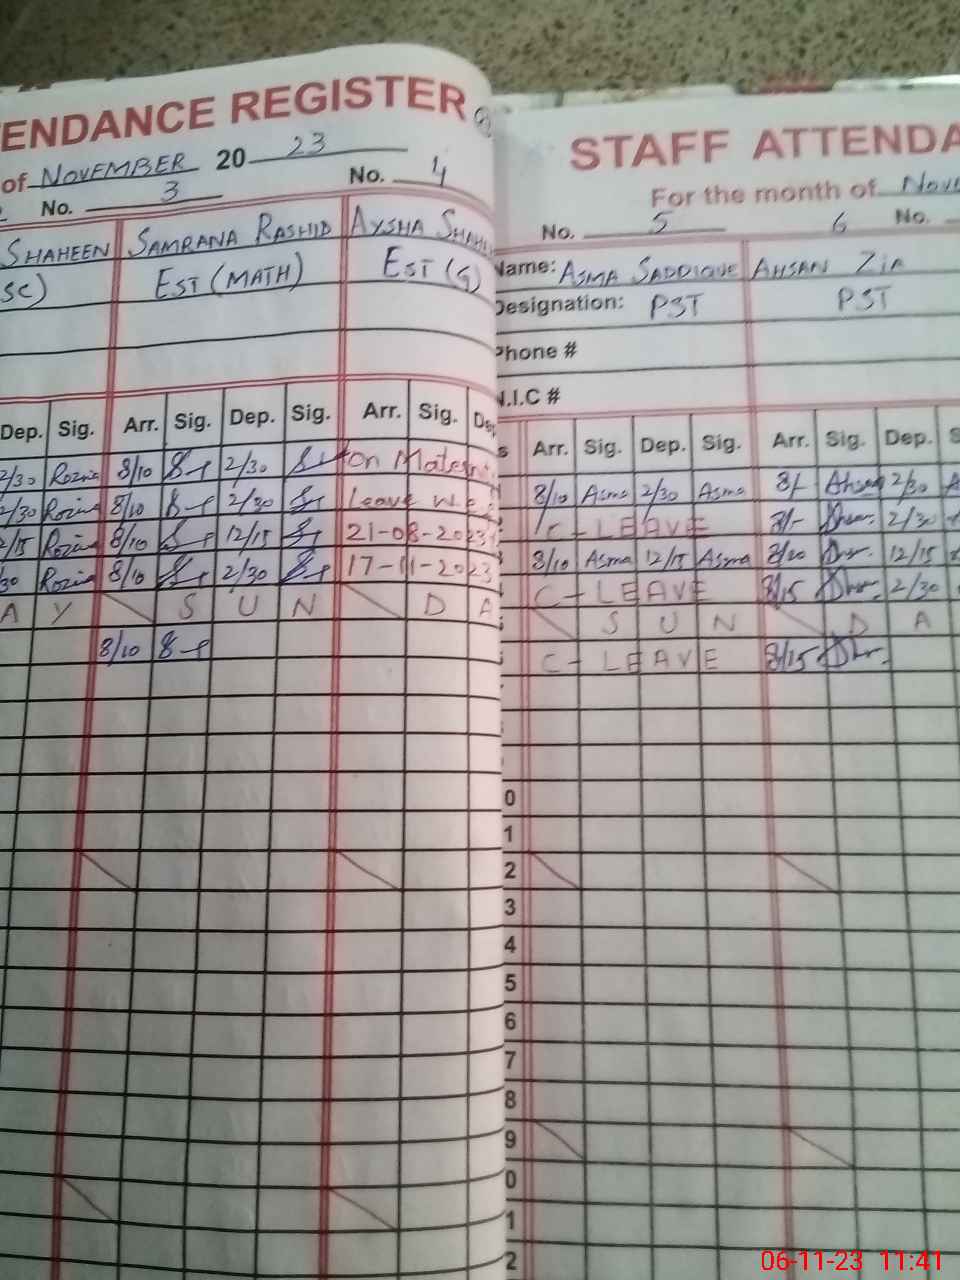 ENDANCE REGISTER
of NOVEMBER 20 23
No. 3 No. 4
SHAHEEN SAMRANA RASHID AYSHA
SC) EST (MATH) EST (G)
Dep. Sig. Arr. Sig. Dep. Sig. Arr. Sig.
2/30 Rozina 8/10 2/30 On
2/30 Rozina 8/10 2/30 Leave
2/15 Rozina 8/10 12/15 21-08-2023
30 Rozina 8/10 2/30 17-11-2023
A Y S U N D A
8/10
STAFF ATTENDA
For the month of Nov
No. 5 6 No.
Name: ASMA SADDIQUE AHSAN ZIA
Designation: PST PST
Phone #
N.I.C #
s Arr. Sig. Dep. Sig. Arr. Sig. Dep. S
8/10 Asma 2/30 Asma 8/- Ahsan 2/30
C-LEAVE 8/- 2/30
8/10 Asma 12/15 Asma 8/20 12/15
C-LEAVE 8/15 2/30
S U N D A
C-LEAVE 8/15
0
1
2
3
4
5
6
7
8
9
0
1
2
06-11-23 11:41